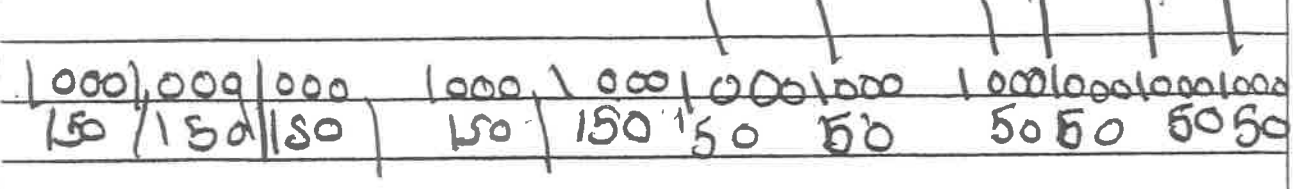 1000 1000 1000 1000 1000 1000 1000 1000 1000 1000 1000
150 150 150 150 150 50 50 50 50 50 50